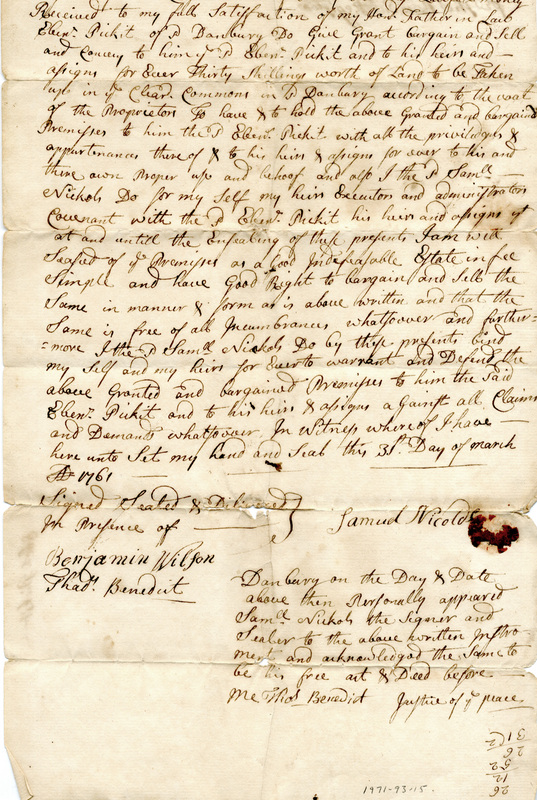 Received to my full Satisfaction of my Hond. Father in Law
Ebenr. Pickit of sd Danbury Do Give Grant bargain and Sell
and Convey to him ye sd Ebenr. Pickit and to his heirs and
assigns for Ever Thirty Shillings worth of Land to be Taken
up in ye Commons in sd Danbury according to the voat
of the Proprietors To have & to hold the above Granted and bargained
Premisses to him the sd Ebenr. Pickit with all the priviledges &
appurtenances thereof & to his heirs & assigns for ever to his and
there own Proper use and behoof and also I the sd Samll.
Nichols Do for my Self my heirs Executors and administrators
Covenant with the sd Ebenr. Pickit his heirs and assigns yt
at and untill the Ensealing of these presents I am well
Seased of ye Premisses as a Good Indefeasable Estate in fee
Simple and have Good Right to bargain and Sell the
Same in manner & form as is above written and that the
Same is free of all Incumbrances whatsoever and further-
-more I the sd Samll Nichols Do by these presents bind
my Self and my heirs for Ever to warrant and Defend the
above Granted and bargained Premisses to him the Said
Ebenr. Pickit and to his heirs & assigns against all Claims
and Demands whatsoever. In Witness whereof I have
here unto Set my hand and Seal this 31st. Day of march
AD 1761
Signed Sealed & Delivered
In Presence of
Samuel Nicols
Benjamin Wilson
Thads. Benedict
Danbury on the Day & Date
above then Personally appeared
Samll Nichols the Signer and
Sealer to the above written Instro-
ment and acknowledged the Same to
be his free act & Deed before
Me Thos Benedict Justice of ye peace
1971-93-15.
26
12
52
26